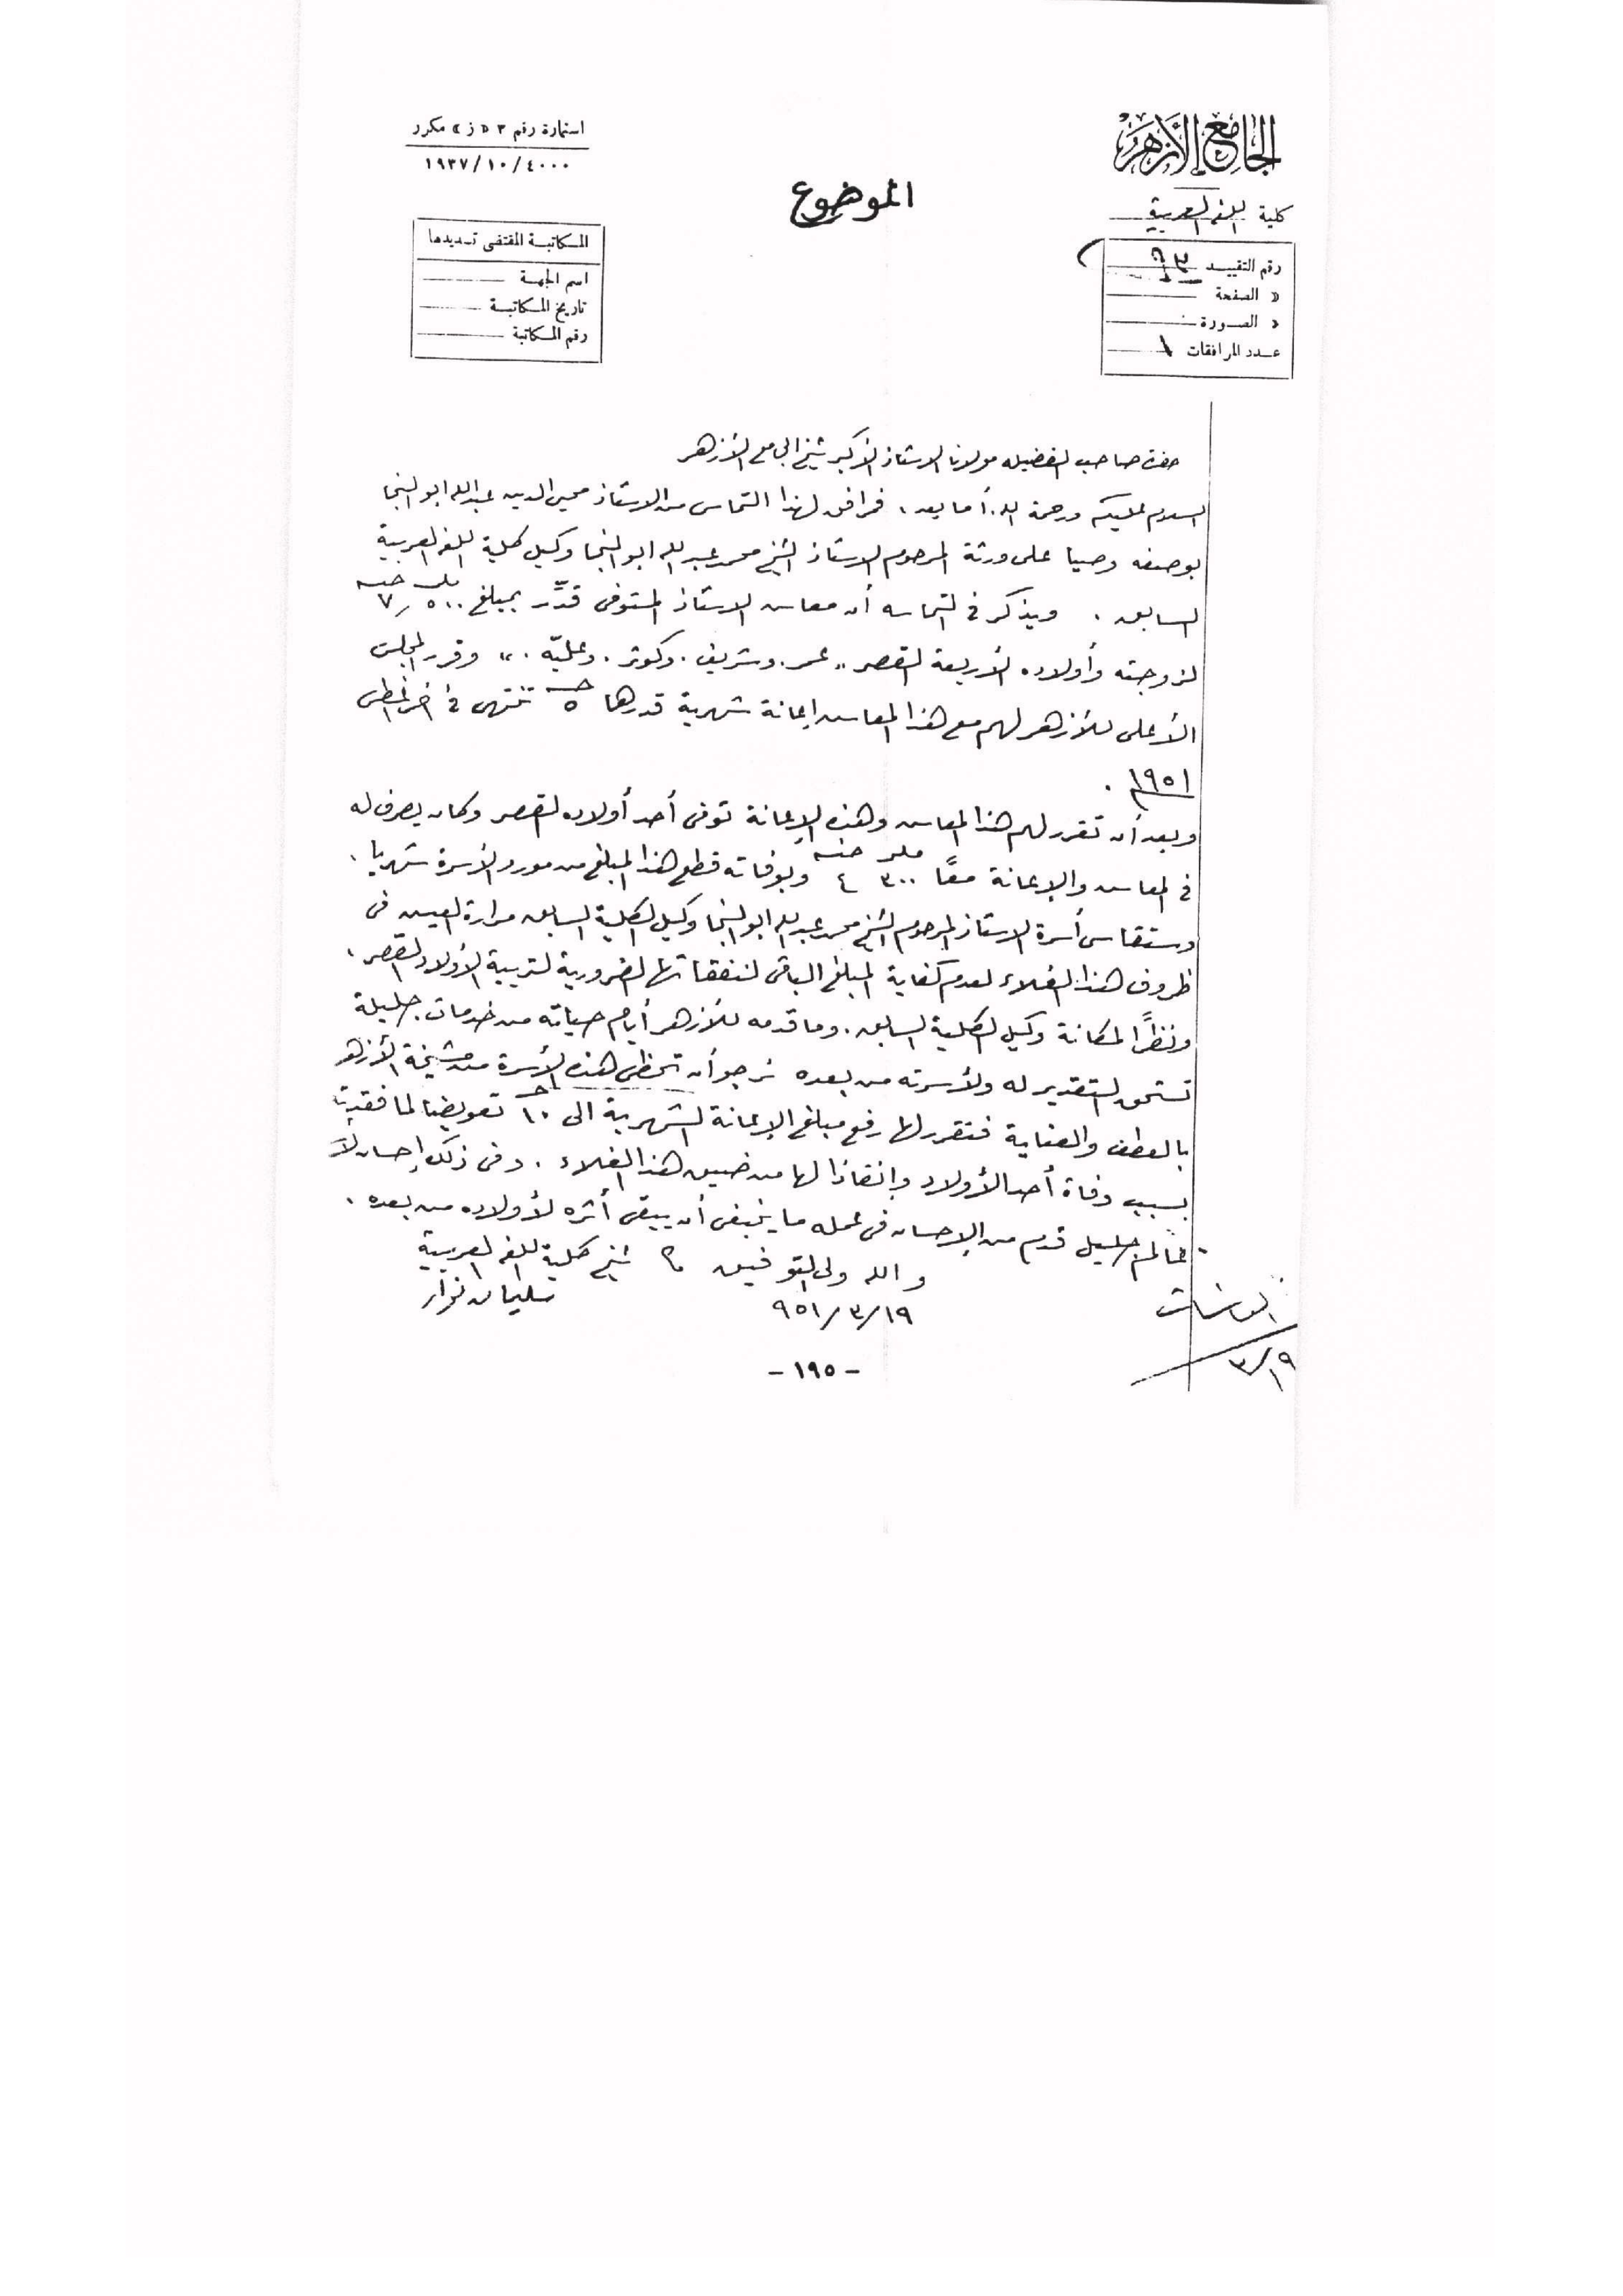 الجامع الأزهر
كلية اللغة العربية
رقم التقييد ٩٣
« الصفحة
« الصورة
عدد المرافقات ١
الموضوع
استمارة رقم ٣ « ز » مكرر
١٩٣٧/١٠/٤٠٠٠
المكاتبة المقتضى تسديدها
اسم الجهة
تاريخ المكاتبة
رقم المكاتبة
حضرة صاحب الفضيله مولانا الاستاذ الأكبر شيخ الجامع الأزهر
السلام عليكم ورحمة الله. أما بعد، فمرافق لهذا التماس من الاستاذ محيى الدين عبدالله ابو النجا
بوصفه وصيا على ورثة المرحوم الاستاذ الشيخ محمد عبدالله ابو النجا وكيل كلية اللغة العربية
السابق. ويذكر فى التماسه أن معاش الاستاذ المتوفى قدِّر بمبلغ ٥٠٠ مليم ٧ جنيه
لزوجته وأولاده الأربعة القصر „ عمر. وشريف. وكوثر. وعليّه. “ وقرر المجلس
الأعلى للأزهر لهم مع هذا المعاش إعانة شهرية قدرها ٥ جـ تنتهى فى آخر أغسطس
١٩٥١ .
وبعد أن تقرر لهم هذا المعاش وهذه الإعانة توفى أحد أولاده القصر وكان يصرف له
فى المعاش والإعانة معًا ٣٠٠ مليم ٤ جنيه وبوفاته قطع هذا المبلغ من مورد الأسرة شهريا.
وستقاسى أسرة الاستاذ المرحوم الشيخ محمد عبدالله ابو النجا وكيل الكلية السابق مرارة العيش فى
ظروف هذا الغلاء لعدم كفاية المبلغ الباقى لنفقاتها الضرورية لتربية الأولاد القصر.
ونظرًا لمكانة وكيل الكلية السابق. وما قدمه للأزهر أيام حياته من خدمات جليلة
تستحق التقدير له ولأسرته من بعده نرجو أن تحظى هذه الأسرة من مشيخة الأزهر
بالعطف والعناية فتقرر لها رفع مبلغ الإعانة الشهرية الى ١٠ جـ تعويضا لما فقدته
بسبب وفاة أحد الأولاد وإنقاذا لها من ضيق هذا الغلاء. وفى ذلك إحسان
لعالم جليل قدم من الإحسان فى عمله ما ينبغى أن يبقى أثره لأولاده من بعده.
والله ولى التوفيق شيخ كلية اللغة العربية
٩٥١/٣/١٩ سليمان نوار
٣/١٩
- ١٩٥ -